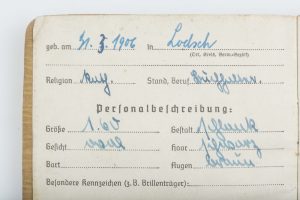 geb. am 31. 3. 1906 in Lodsch
(Ort, Kreis, Verw.-Bezirk)
Religion Stand, Beruf
Personalbeschreibung:
Größe 1.60 Gestalt schlank
Gesicht oval Haar schwarz
Bart Augen braun
Besondere Kennzeichen (z. B. Brillenträger):